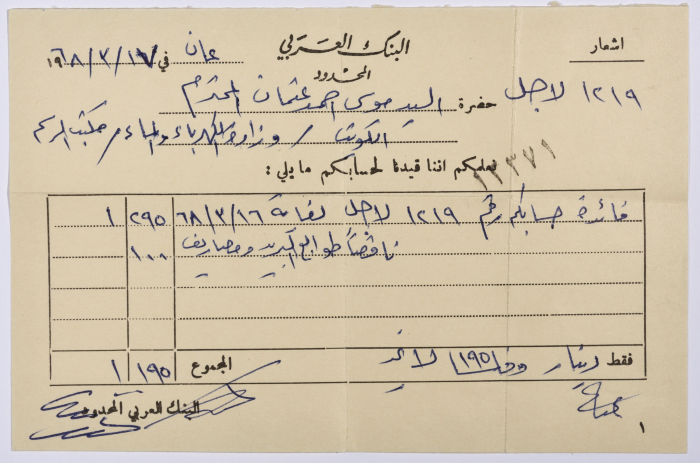 اشعار
البنك العربي
المحدود
عمان في ١٩٦٨/٣/١٧
١٢١٩ لاجل
حضرة السيد موسى احمد عثمان المحترم
الكويت / وزارة الكهرباء والماء / مكتب الرسم
نعلمكم اننا قيدنا لحسابكم ما يلي :
١٢٣٧١
فائدة حسابكم رقم ١٢١٩ لاجل لغاية ٦٨/٣/١٦ ٢٩٥ ١
ناقصاً طوابع البريد ومصاريف ١٠٠
فقط دينار و ١٩٥ فلساً لا غير المجموع ١٩٥ ١
البنك العربي المحدود
١